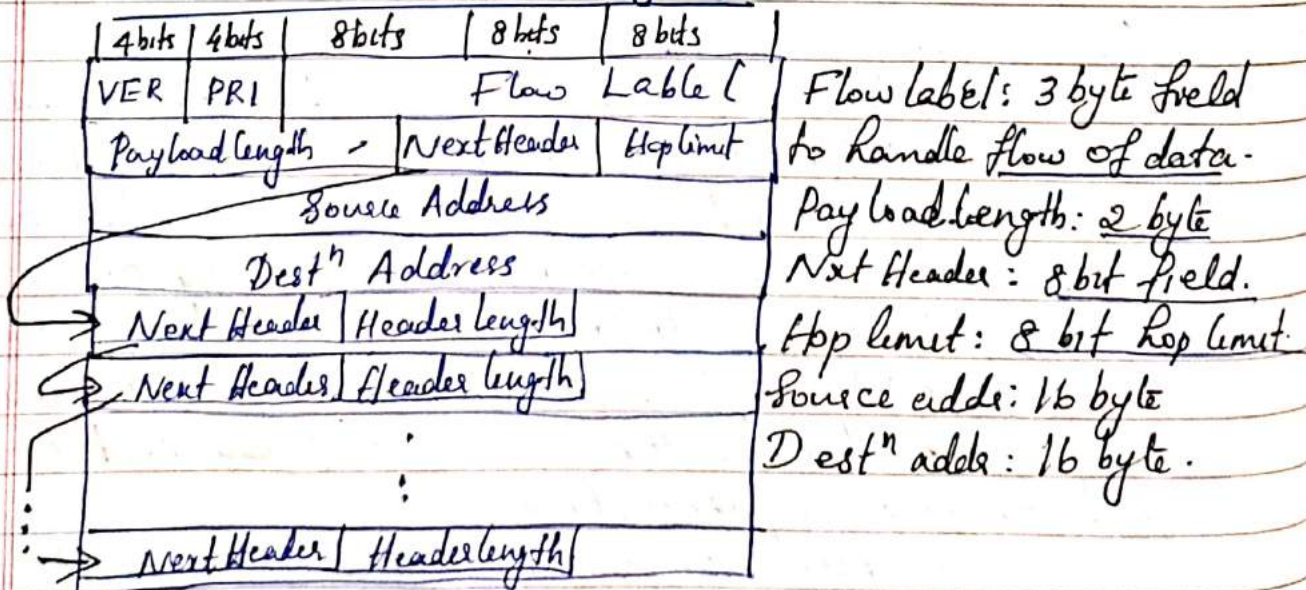 4bits 4bits 8bits 8bits 8bits
VER PRI Flow Lable
Payload length Next Header Hop limit
Source Address
Destⁿ Address
Next Header Header length
Next Header Header length
Next Header Header length
Flow label: 3 byte field
to handle flow of data.
Payload Length: 2 byte
Nxt Header: 8 bit field.
Hop limit: 8 bit hop limit.
Source addr: 16 byte
Destⁿ addr: 16 byte.